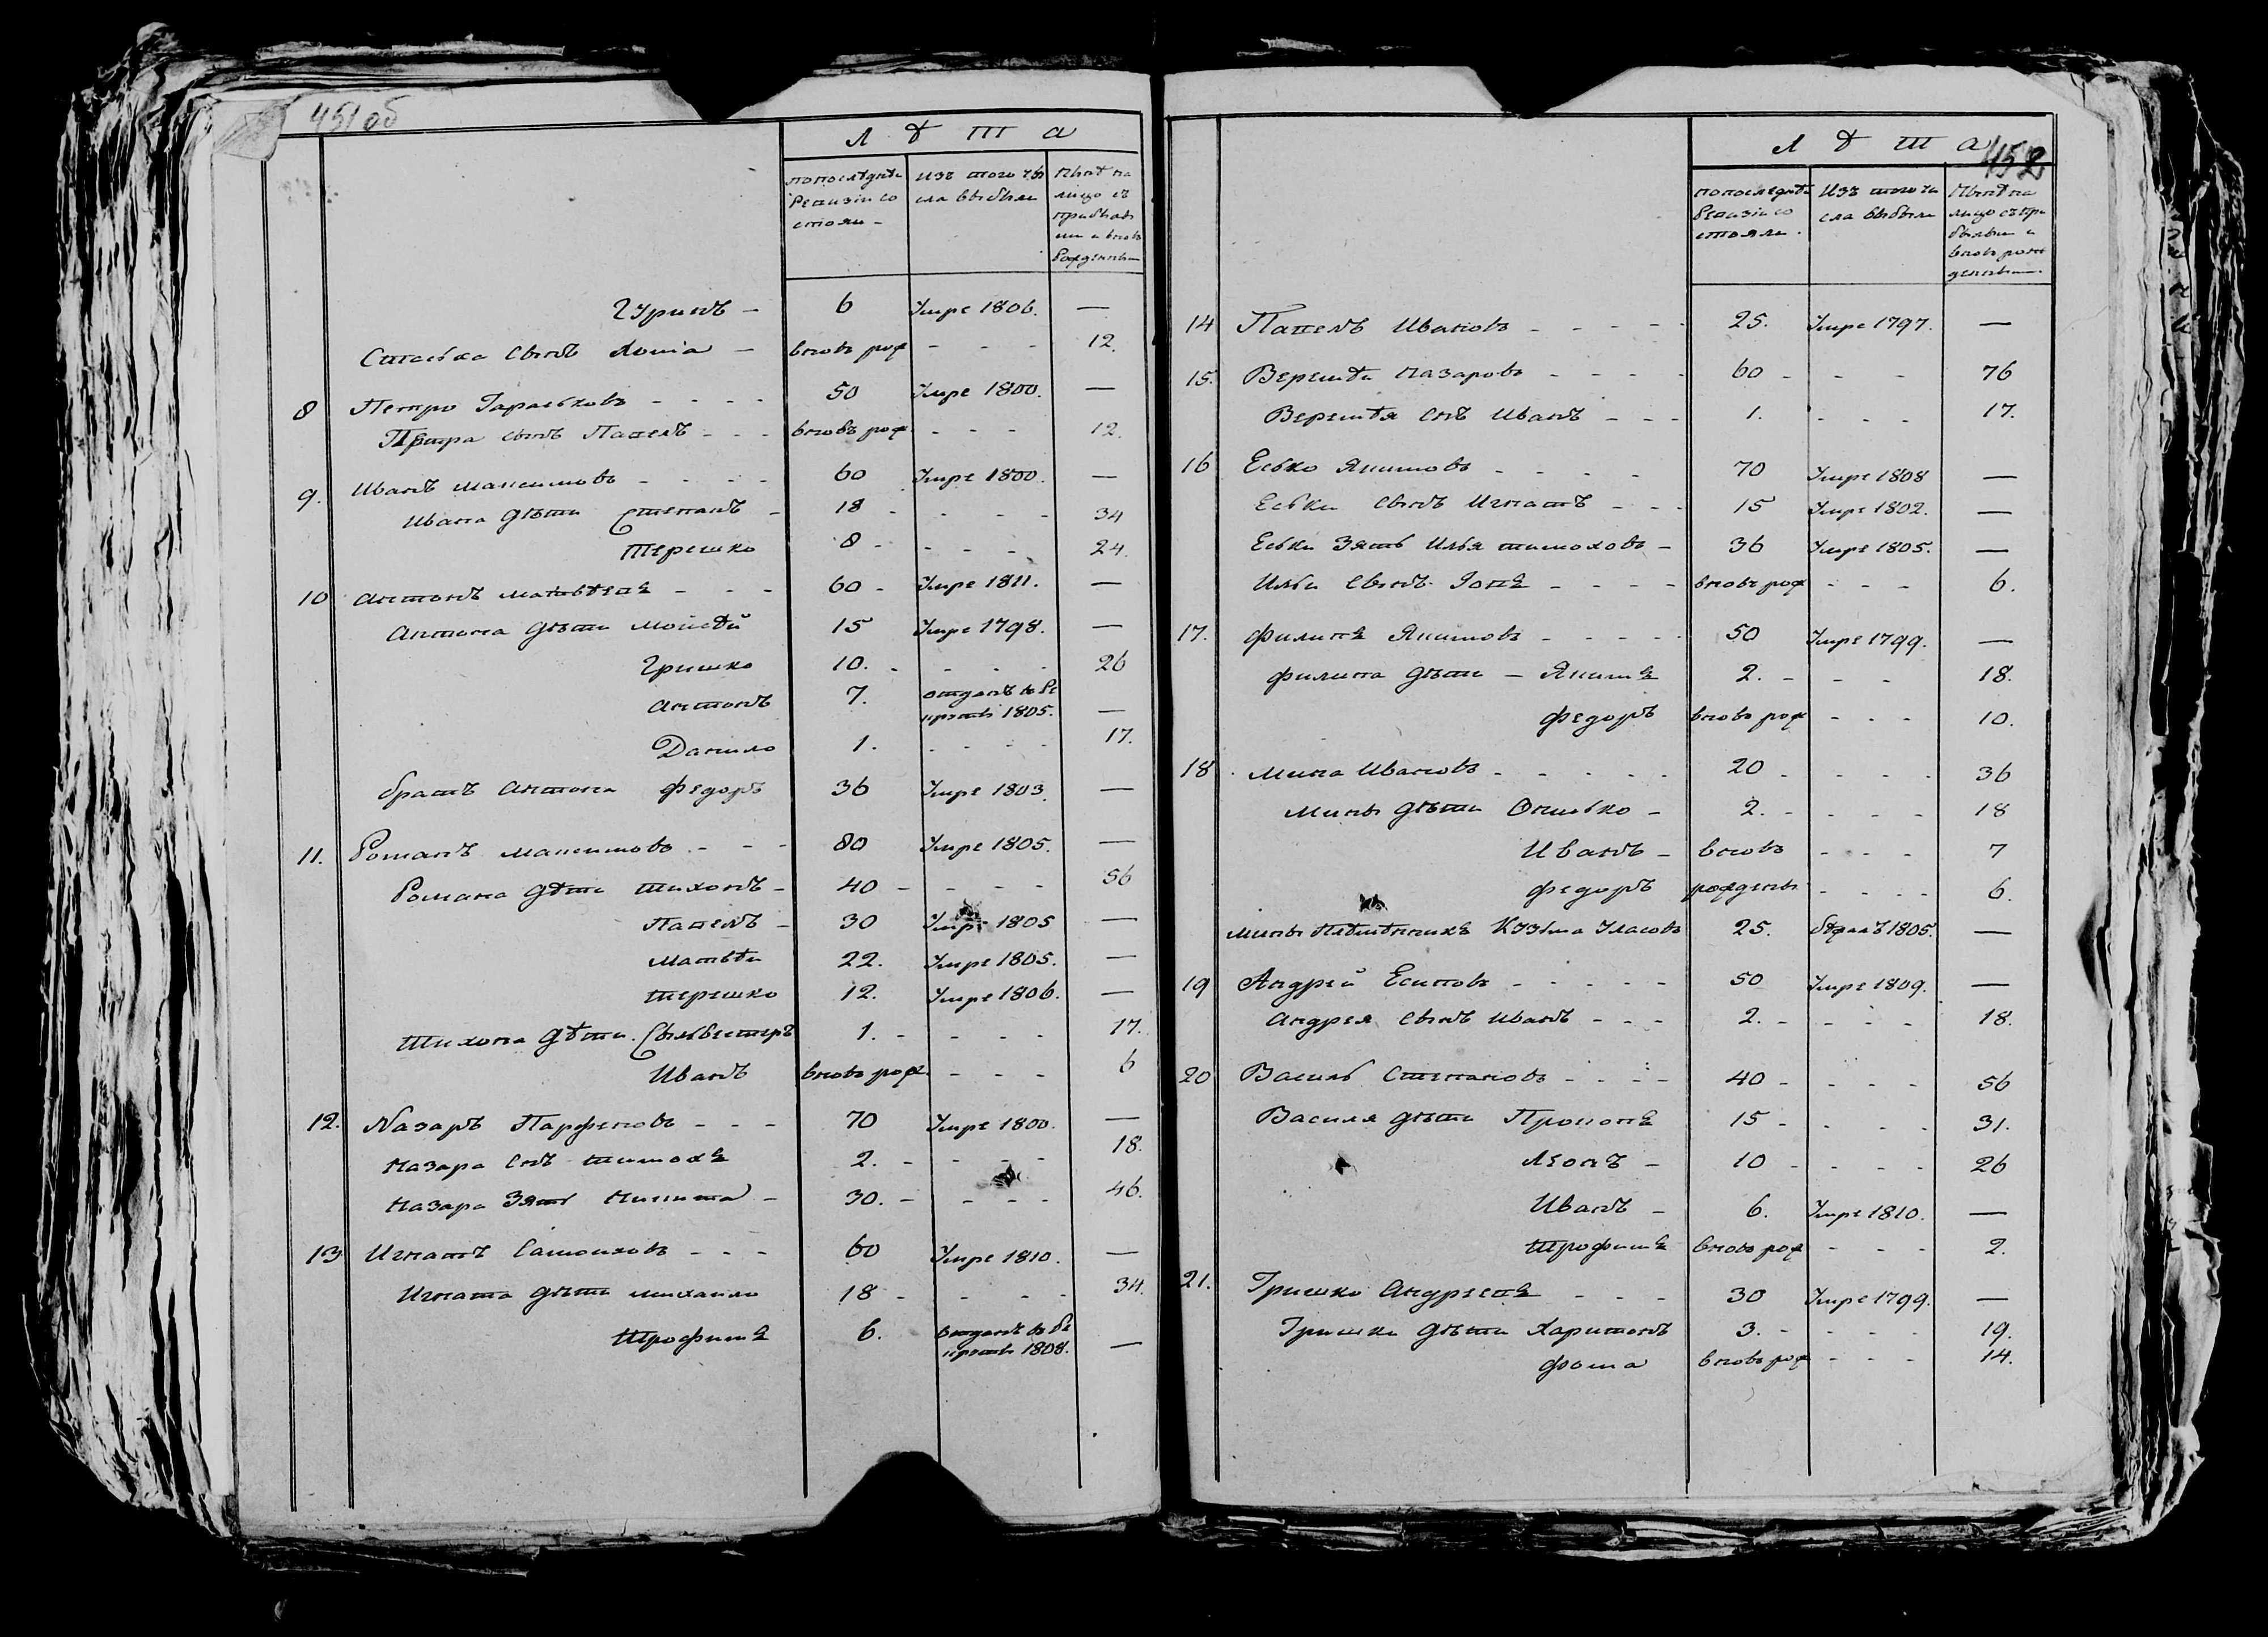 451 об
Лѣта
по последней Ревизіи состояли
Изъ того числа выбыли
Нынѣ на лицо съ прибылыми и вновь рожденными
Гуринъ - 6 Умре 1806. —
Стаська сынъ Хома - вновь рож - - - 12.
8 Петро Гараськовъ - - - - 50 Умре 1800. —
Петра сынъ Павелъ - - - вновь рож - - - 12.
9. Иванъ Максимовъ - - - - 60 Умре 1800. —
Ивана дѣти Степанъ - 18 - - - 34
Терешко 8 - - - - 24.
10 Антонъ Матвѣевъ - - - 60 - Умре 1811. —
Антона дѣти Мойсѣй 15 Умре 1798. —
Гришко 10. - - - - 26
Антонъ 7. отданъ въ Рекруты 1805. —
Данило 1. - - - - 17.
братъ Антона Федоръ 36 Умре 1803. —
11. Романъ Максимовъ - - - 80 Умре 1805. —
Романа дѣти Тихонъ - 40 - - - - 56
Павелъ - 30 Умре 1805 —
Матвѣй 22. Умре 1805. —
Терешко 12. Умре 1806. —
Тихона дѣти Сылвестръ 1. - - - - 17.
Иванъ вновь рож. - - - 6
12. Назаръ Парфеновъ - - - 70 Умре 1800. —
Назара снъ Тимохъ 2. - - - - 18.
Назара Зять Никита - 30. - - - - 46.
13 Игнатъ Самоиловъ - - - 60 Умре 1810. —
Игната дѣти Михайло 18 - - - - 34.
Трофимъ 6. отданъ въ Рекруты 1808. —
452
Лѣта
по последней Ревизіи состояли.
Изъ того числа выбыли
Нынѣ на лицо съ прибылыми и вновь рожденными.
14 Павелъ Ивановъ - - - - - 25. Умре 1797. —
15. Веремѣй Назаровъ - - - - 60 - - - 76
Веремѣя снъ Иванъ - - - 1. - - - 17.
16 Еско Якимовъ - - - - 70 Умре 1808 —
Еськи сынъ Игнатъ - - - 15 Умре 1802. —
Еськи Зять Илья Тимоховъ - 36 Умре 1805. —
Ильи сынъ Іопъ - - - - вновь рож - - - 6.
17. Филипъ Якимовъ - - - - - 50 Умре 1799. —
Филипа дѣти - Якимъ 2. - - - 18.
Федоръ вновь рож - - - 10.
18 Мина Ивановъ - - - - - 20 - - - - 36
Мины дѣти Омелько - 2. - - - - 18
Иванъ - вновь - - - 7
Федоръ рождены - - - - 6.
Мины Племѣнникъ Кузьма Уласовъ 25. бѣжалъ 1805. —
19 Андрей Есиповъ - - - - - 50 Умре 1809. —
Андрея сынъ Иванъ - - - 2. - - - - 18.
20 Василь Степановъ - - - - 40 - - - - 56
Василя дѣти Прокопъ 15 - - - - 31.
Леонъ - 10 - - - - 26
Иванъ - 6. Умре 1810. —
Трофимъ вновь рож - - - 2.
21. Гришко Андреевъ - - - 30 Умре 1799. —
Гришки дѣти Харитонъ 3. - - - - 19.
Фома вновь рож - - - 14.